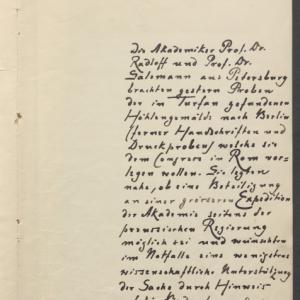 Die Akademiker Prof. Dr.
Radloff und Prof. Dr.
Salemann aus Petersburg
brachten gestern Proben
der in Turfan gefundenen
Höhlengemälde nach Berlin
(ferner Handschriften und
Druckproben) welche sie
dem Congress in Rom vor-
legen wollen. Sie legten
nahe, ob eine Beteiligung
an einer grösseren Expedition
der Akademie seitens der
preuszischen Regierung
möglich sei und wünschten
im Notfalle eine wenigstens
wissenschaftliche Unterstützung
der Sache durch Hinweis